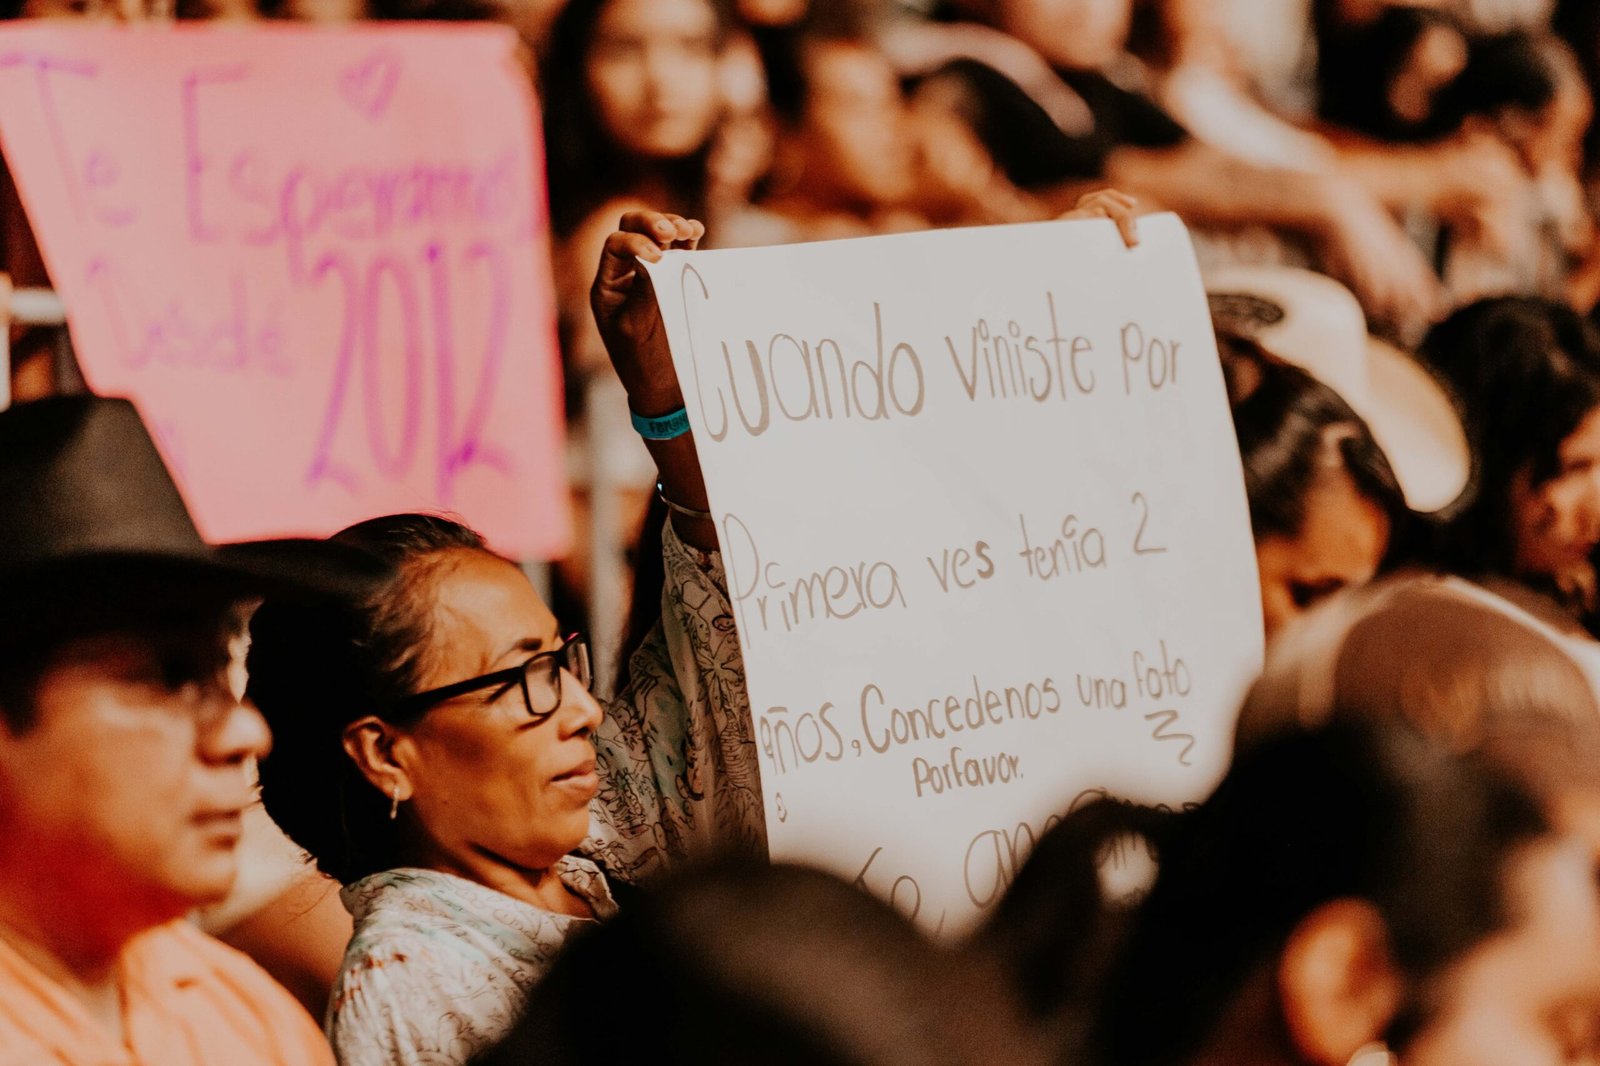 Te Esperamos
Desde 2012
Cuando viniste por
Primera ves tenia 2
años, Concedenos una foto
Porfavor.